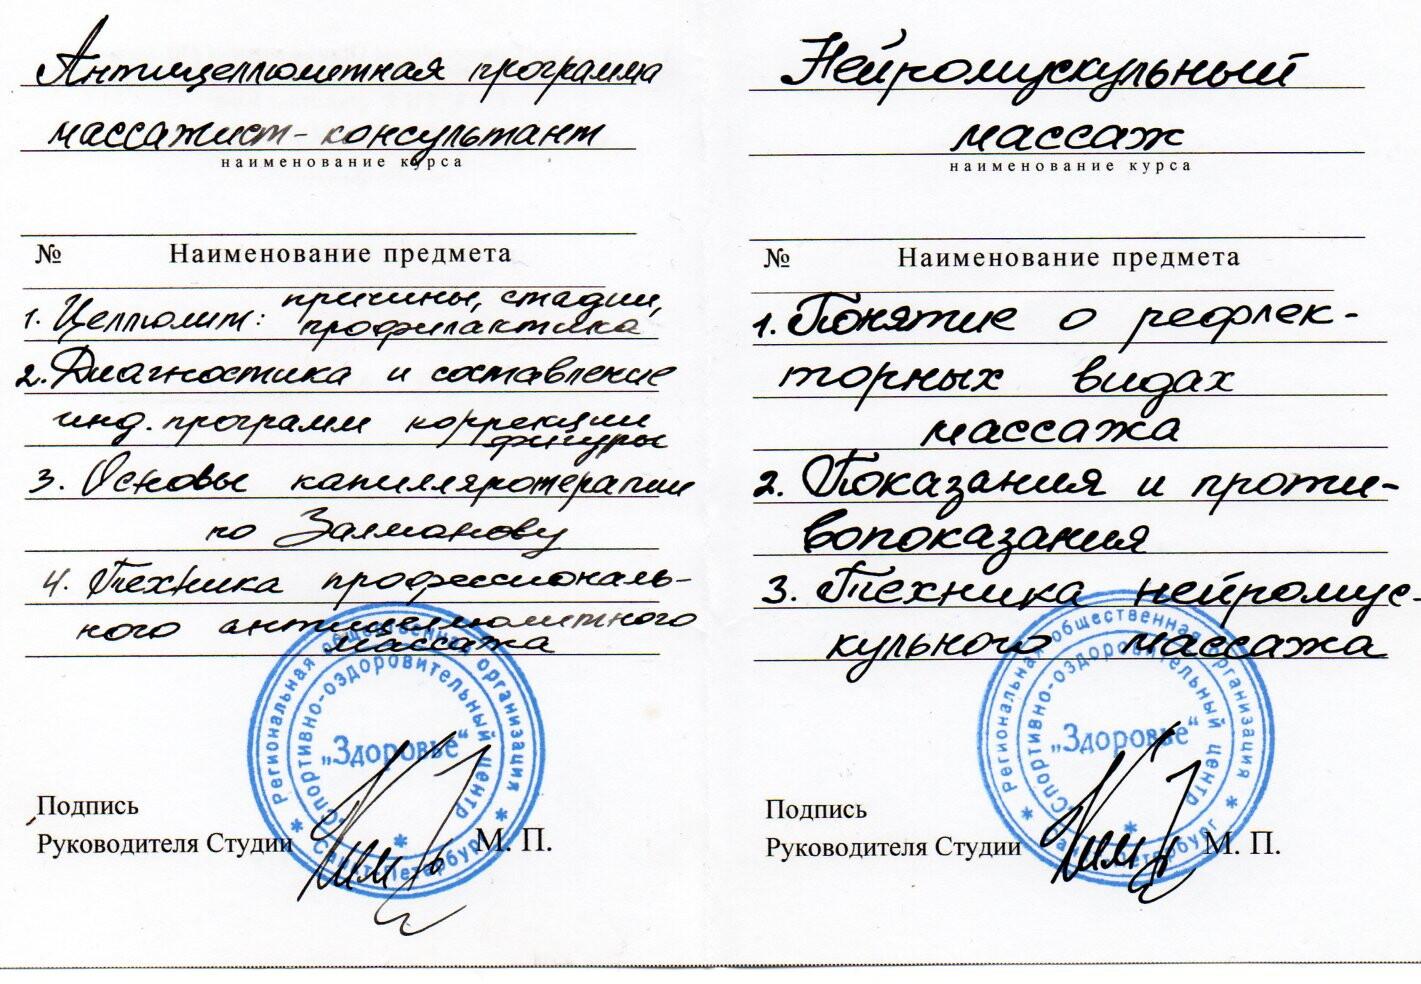 Антицеллюлитная программа
массажист-консультант
наименование курса
№ Наименование предмета
1. Целлюлит: причины, стадии,
профилактика
2. Диагностика и составление
инд. программ коррекции
фигуры
3. Основы капилляротерапии
по Залманову
4. Техника профессиональ-
ного антицеллюлитного
массажа
Региональная общественная организация
Спортивно-оздоровительный центр
„Здоровье“
Санкт-Петербург
Подпись
Руководителя Студии М. П.
Нейромускульный
массаж
наименование курса
№ Наименование предмета
1. Понятие о рефлек-
торных видах
массажа
2. Показания и проти-
вопоказания
3. Техника нейромус-
кульного массажа
Региональная общественная организация
Спортивно-оздоровительный центр
„Здоровье“
Санкт-Петербург
Подпись
Руководителя Студии М. П.